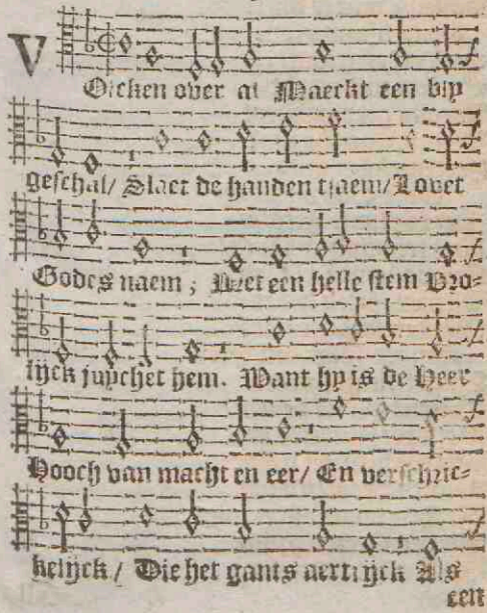 V
Olcken over al Maeckt een bly
geschal/ Slaet de handen tsaem/ Lovet
Godes naem; Met een helle stem Vro-
lijck juychet hem. Want hy is de Heer
Hooch van macht en eer/ En verschric-
kelijck/ Die het gants aertrijck Als
een